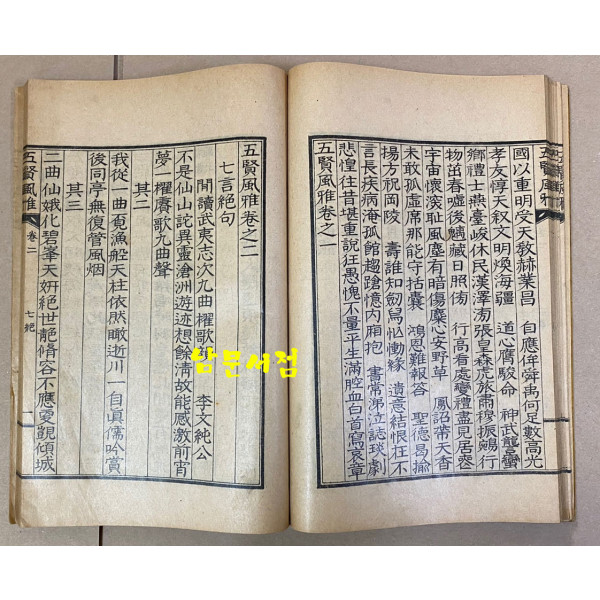 五賢風雅
國以重明受天敎赫業昌 自應侔舜禹何足數高光
孝友惇天叙文明煥海疆 道心膺駿命 神武讋蠻
鄉禮士燕臺峻休民漢澤滂張皇森虎旅肅穆振鵷行
物出春噓後魑藏日照傍 行高看處變禮盡見居喪
宇宙懷滾耻風塵有暗傷麋心安野草 鳳詔帶天香
未敢孤虛席那能守括囊 鴻恩難報答 聖德曷揄
揚方祝岡陵 壽誰知劒舃忙慟緣 遺意結恨在不
言長疾病淹孤館趨蹌憶內廂抱 書常涕泣誌琰劇
悲惶往昔堪重說狂愚愧不量平生滿腔血白首寫哀章
五賢風雅卷之一
五賢風雅卷之二
七言絕句
閒讀武夷志次九曲櫂歌 李文純公
不是仙山詫異靈滄洲遊迹想餘淸故能感激前宵
夢一櫂賡歌九曲聲
其二
我從一曲覓漁船天柱依然瞰逝川一自眞儒吟賞
後同亭無復管風烟
其三
二曲仙娥化碧峯天妍絕世靚脩容不應更覬傾城
五賢風雅 卷二 七絕 一
남문서점